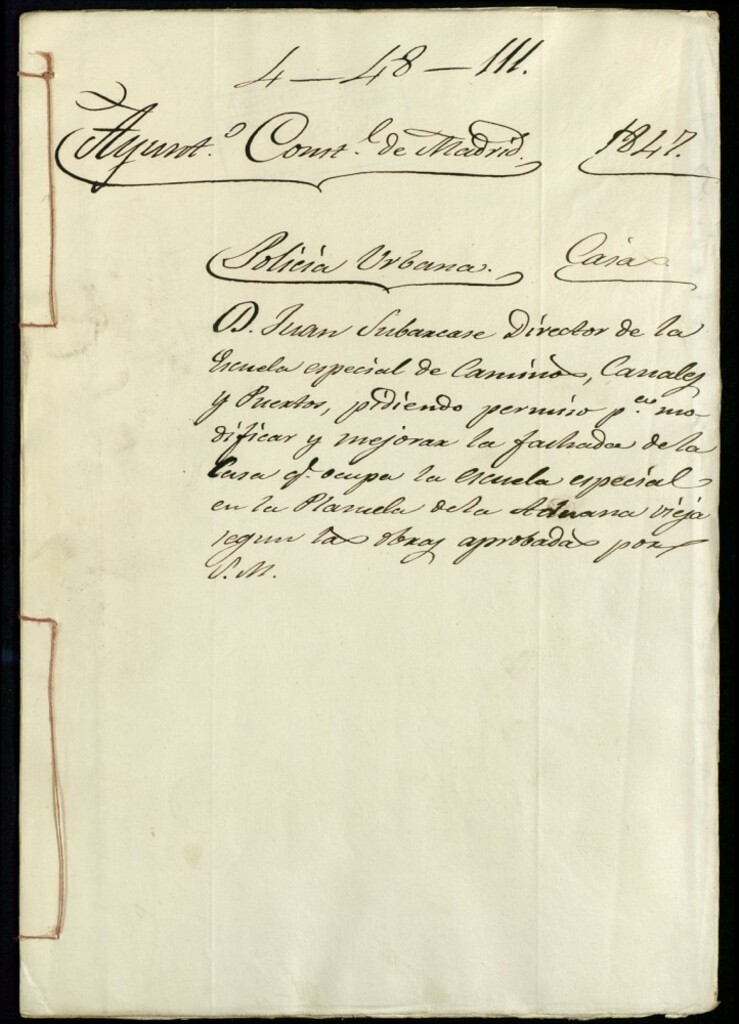 4 — 48 — 111.
Ayunt.º Const.l de Madrid. 1847.
Policia Urbana. Casas
D. Juan Subercase Director de la
Escuela especial de Caminos, Canales
y Puertos, pidiendo permiso p.ª mo-
dificar y mejorar la fachada de la
Casa q.e ocupa la escuela especial
en la Plazuela dela Aduana vieja
segun las obras aprobadas por
S. M.